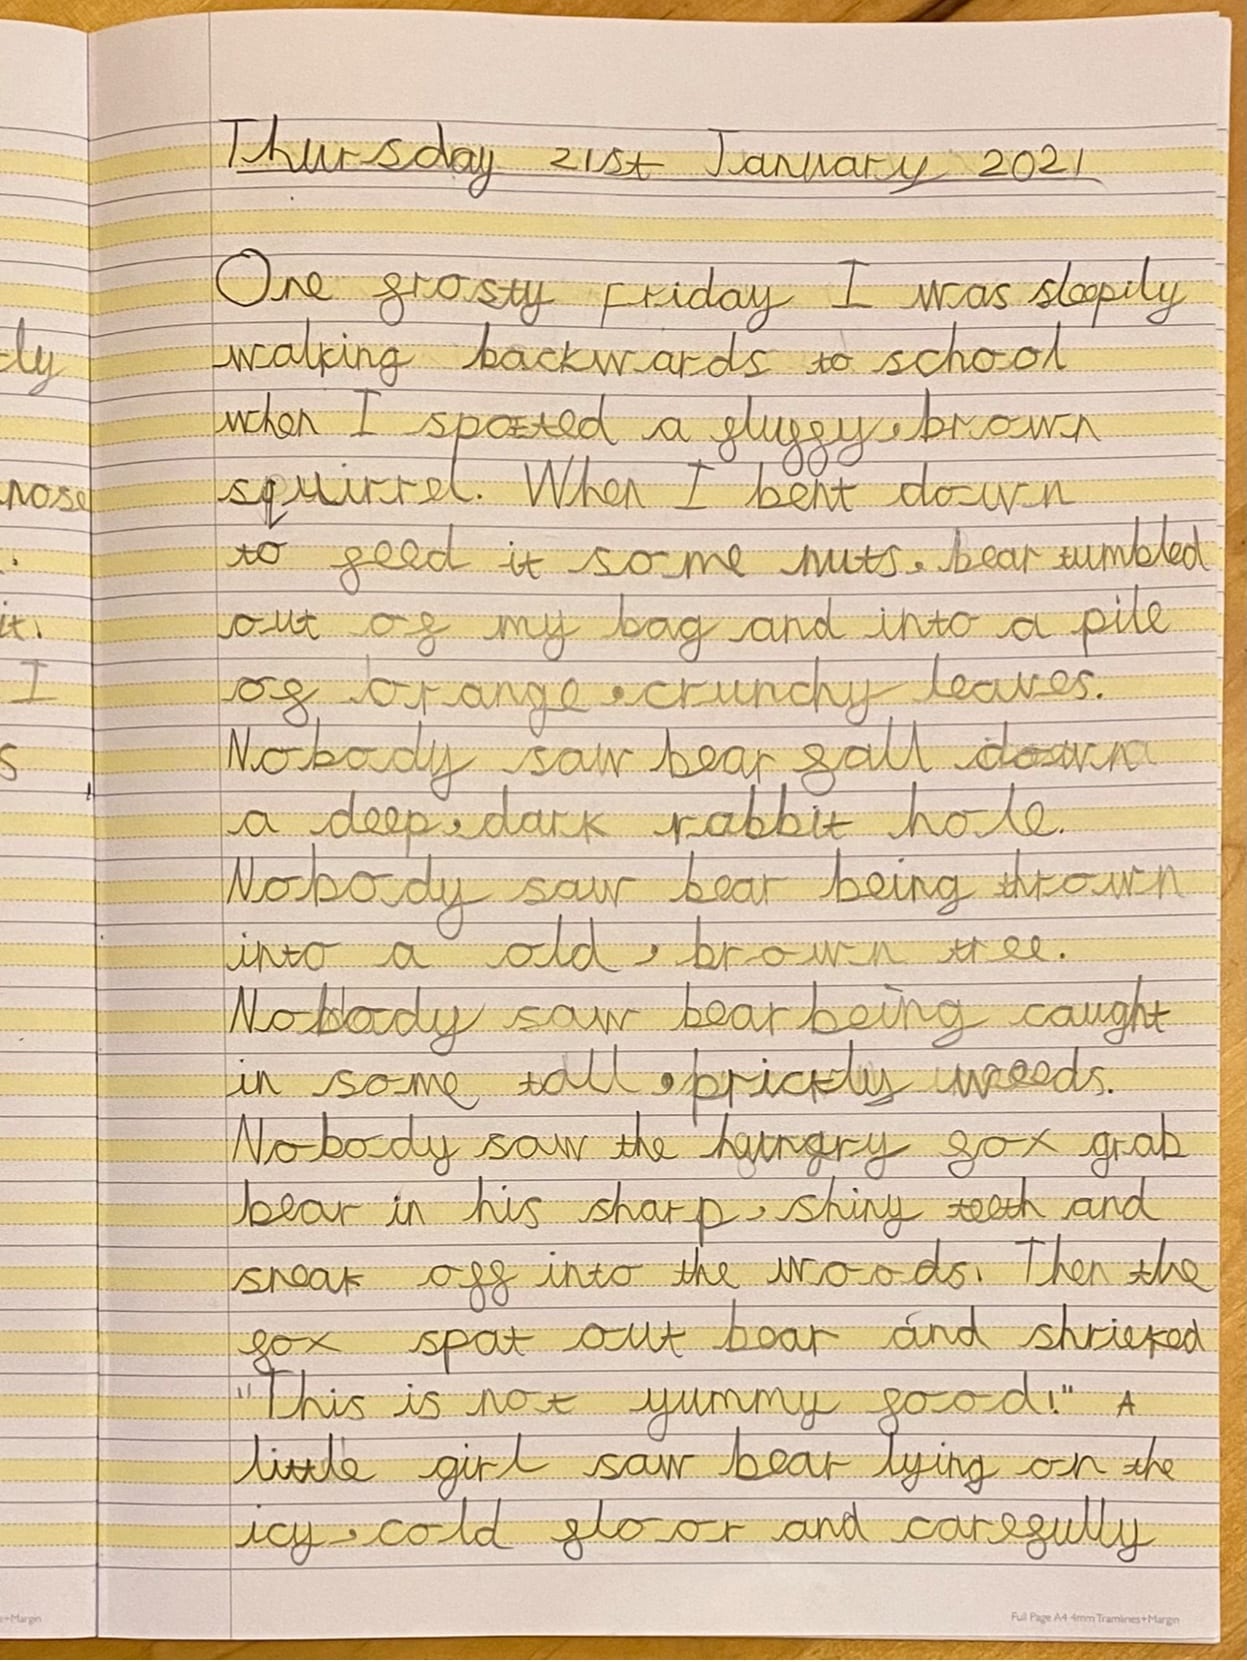 Thursday 21st January 2021
One frosty Friday I was sleepily
walking backwards to school
when I spotted a fluffy, brown
squirrel. When I bent down
to feed it some nuts, bear tumbled
out of my bag and into a pile
of orange, crunchy leaves.
Nobody saw bear fall down
a deep, dark rabbit hole.
Nobody saw bear being thrown
into a old, brown tree.
Nobody saw bear being caught
in some tall, prickly weeds.
Nobody saw the hungry fox grab
bear in his sharp, shiny teeth and
sneak off into the woods. Then the
fox spat out bear and shrieked
"This is not yummy food!" A
little girl saw bear lying on the
icy, cold floor and carefully
tly
nose
it.
I
s
e+Margin
Full Page A4 4mm Tramlines+Margin